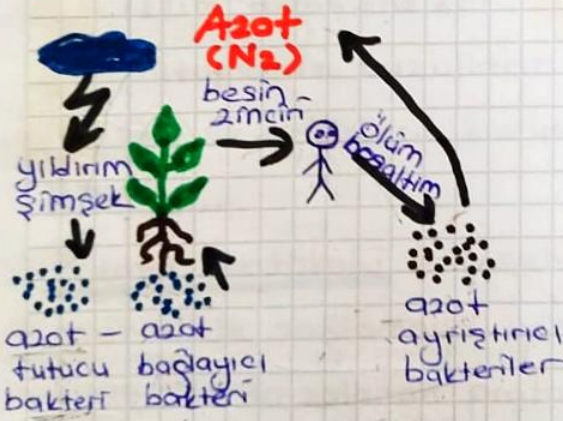 Azot
(N2)
besin
zinciri
ölüm
boşaltım
yıldırım
şimşek
azot –
tutucu
bakteri
azot
bağlayıcı
bakteri
azot
ayrıştırıcı
bakteriler